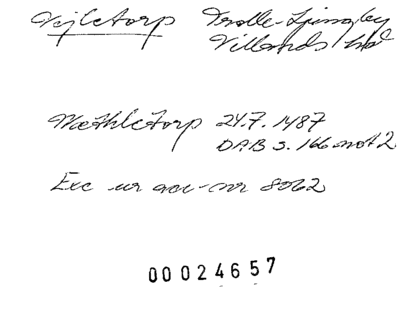 Vejletorp Trolle-Ljungby
Villands hd
Mæthletorp 24.7.1487
DAB s. 166 not 2
Exc ur acc-nr 8062
00024657